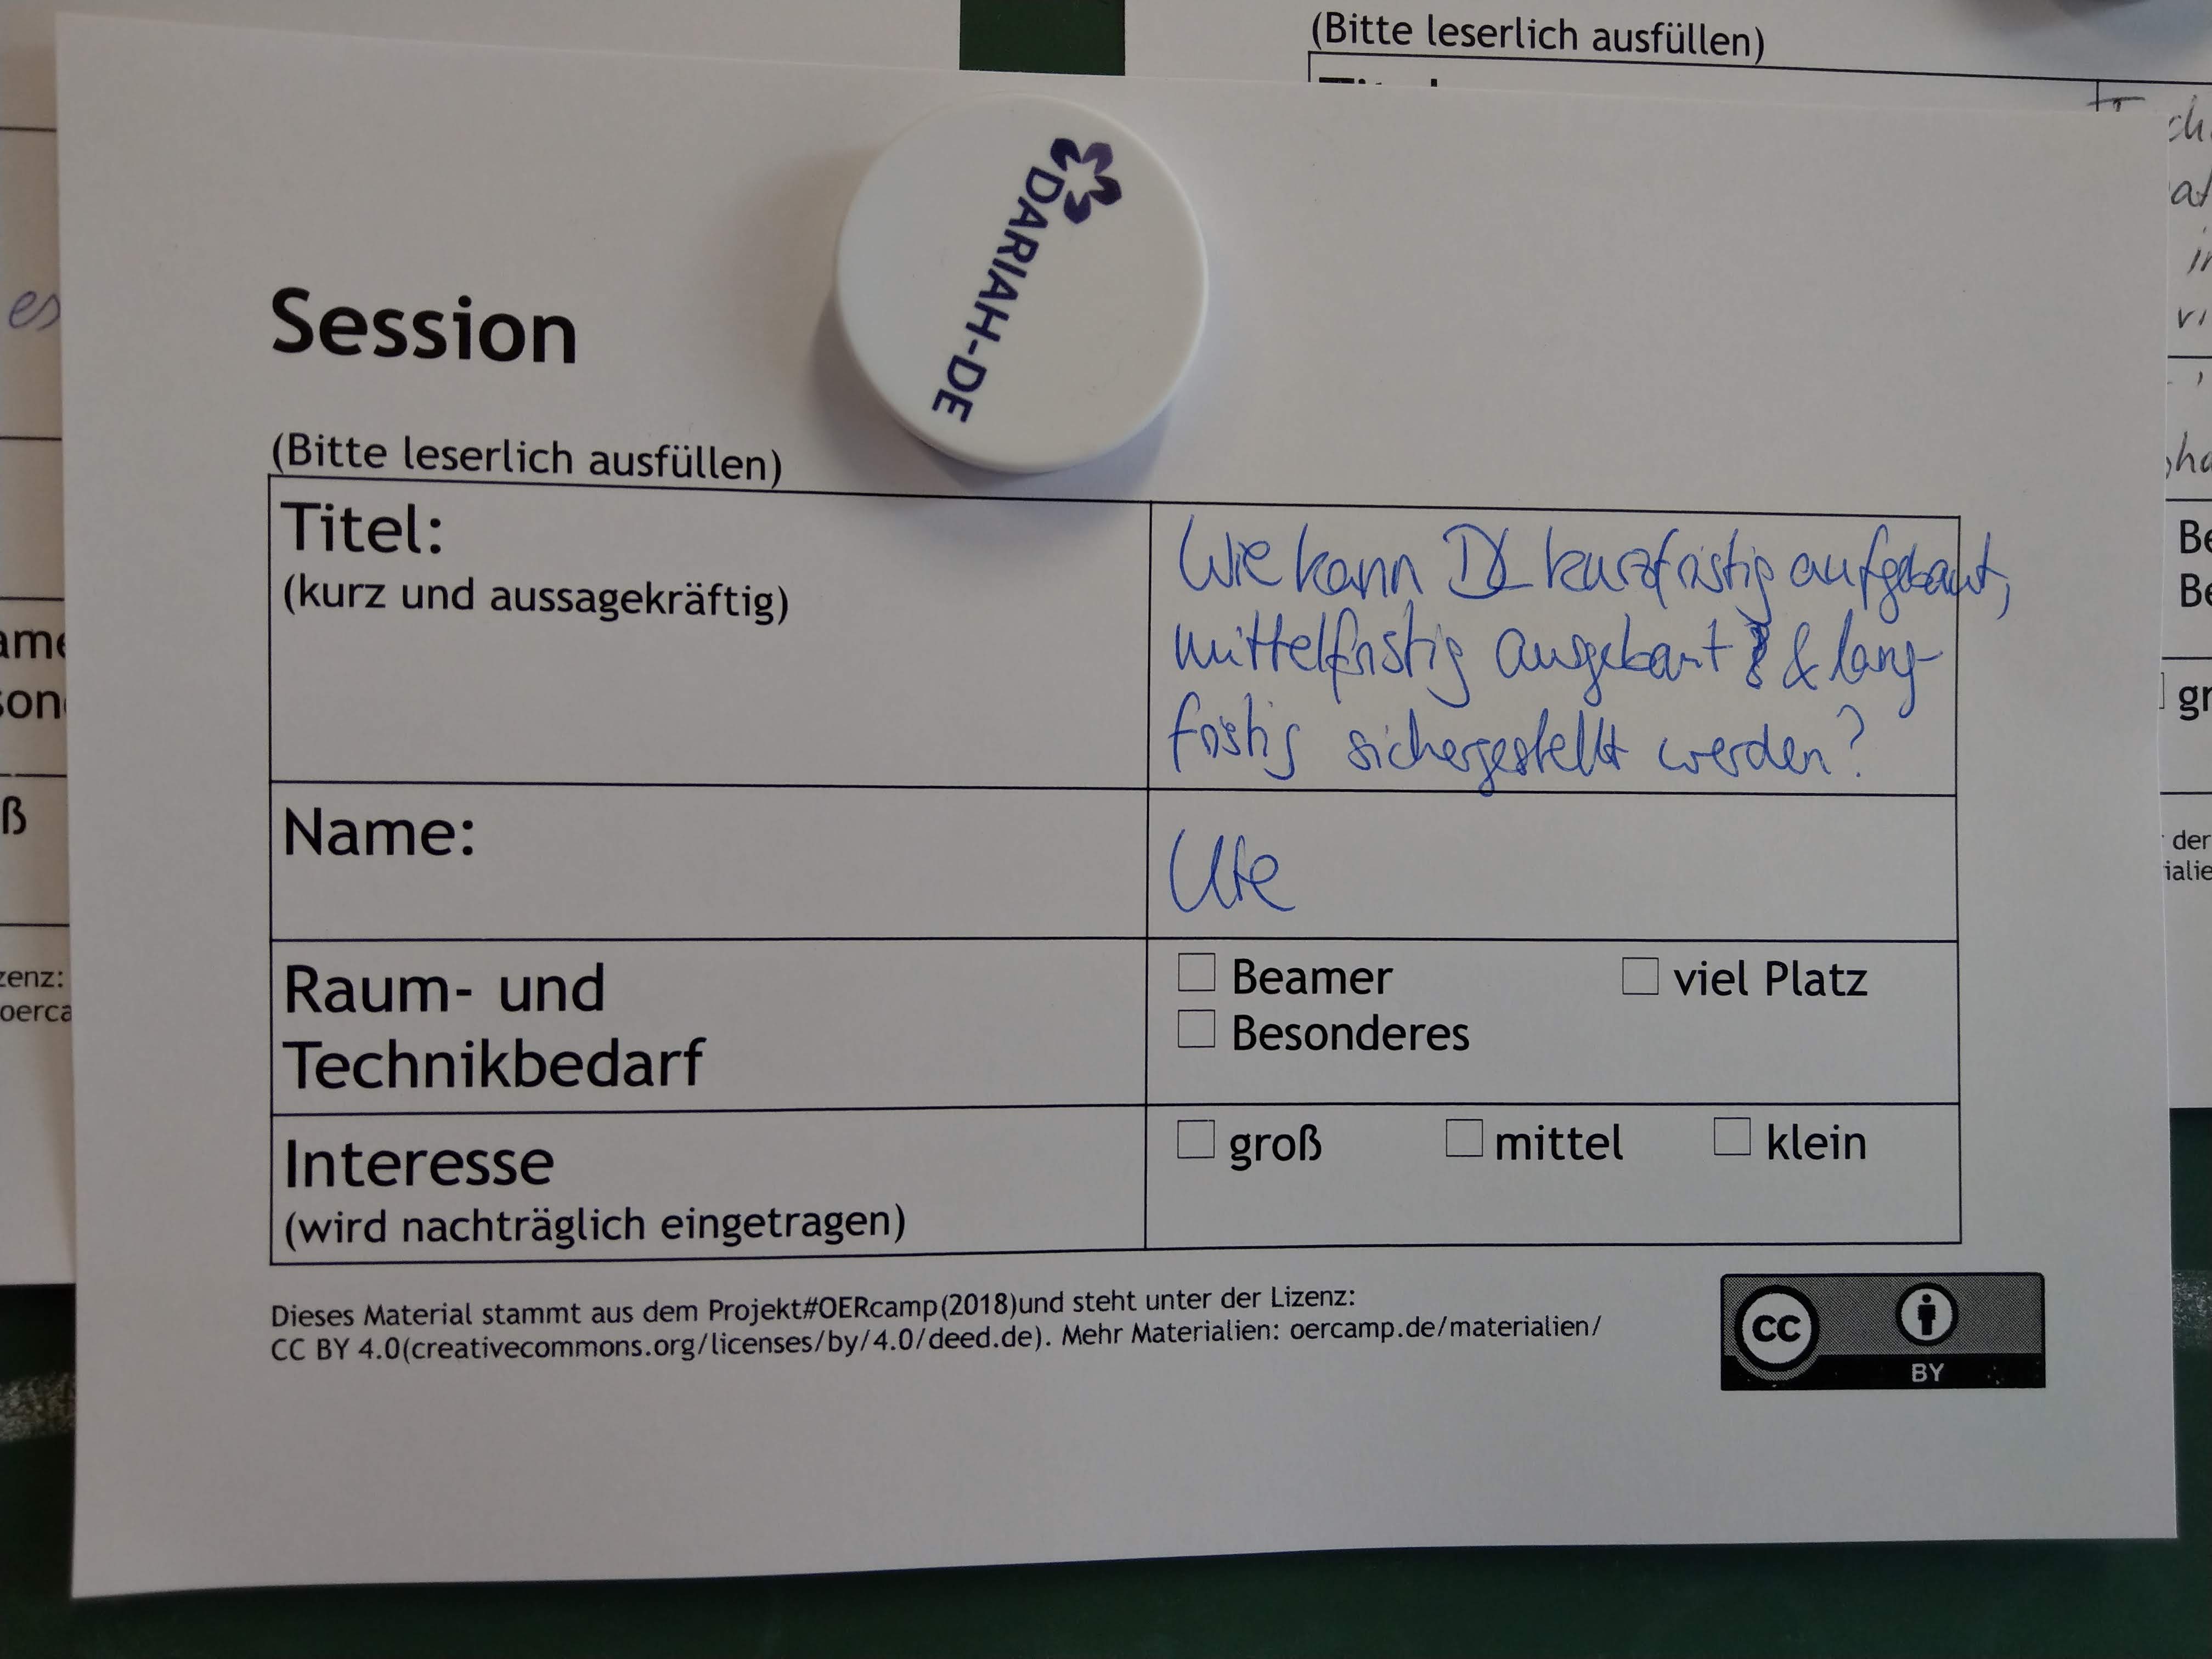 (Bitte leserlich ausfüllen)
DARIAH-DE
Session
(Bitte leserlich ausfüllen)
Titel:
(kurz und aussagekräftig)
Wie kann DL kurzfristig aufgebaut,
mittelfristig ausgebaut & lang-
fristig sichergestellt werden?
Name:
Ute
Raum- und
Technikbedarf
Beamer
viel Platz
Besonderes
Interesse
(wird nachträglich eingetragen)
groß
mittel
klein
Dieses Material stammt aus dem Projekt#OERcamp(2018)und steht unter der Lizenz:
CC BY 4.0(creativecommons.org/licenses/by/4.0/deed.de). Mehr Materialien: oercamp.de/materialien/
CC
BY